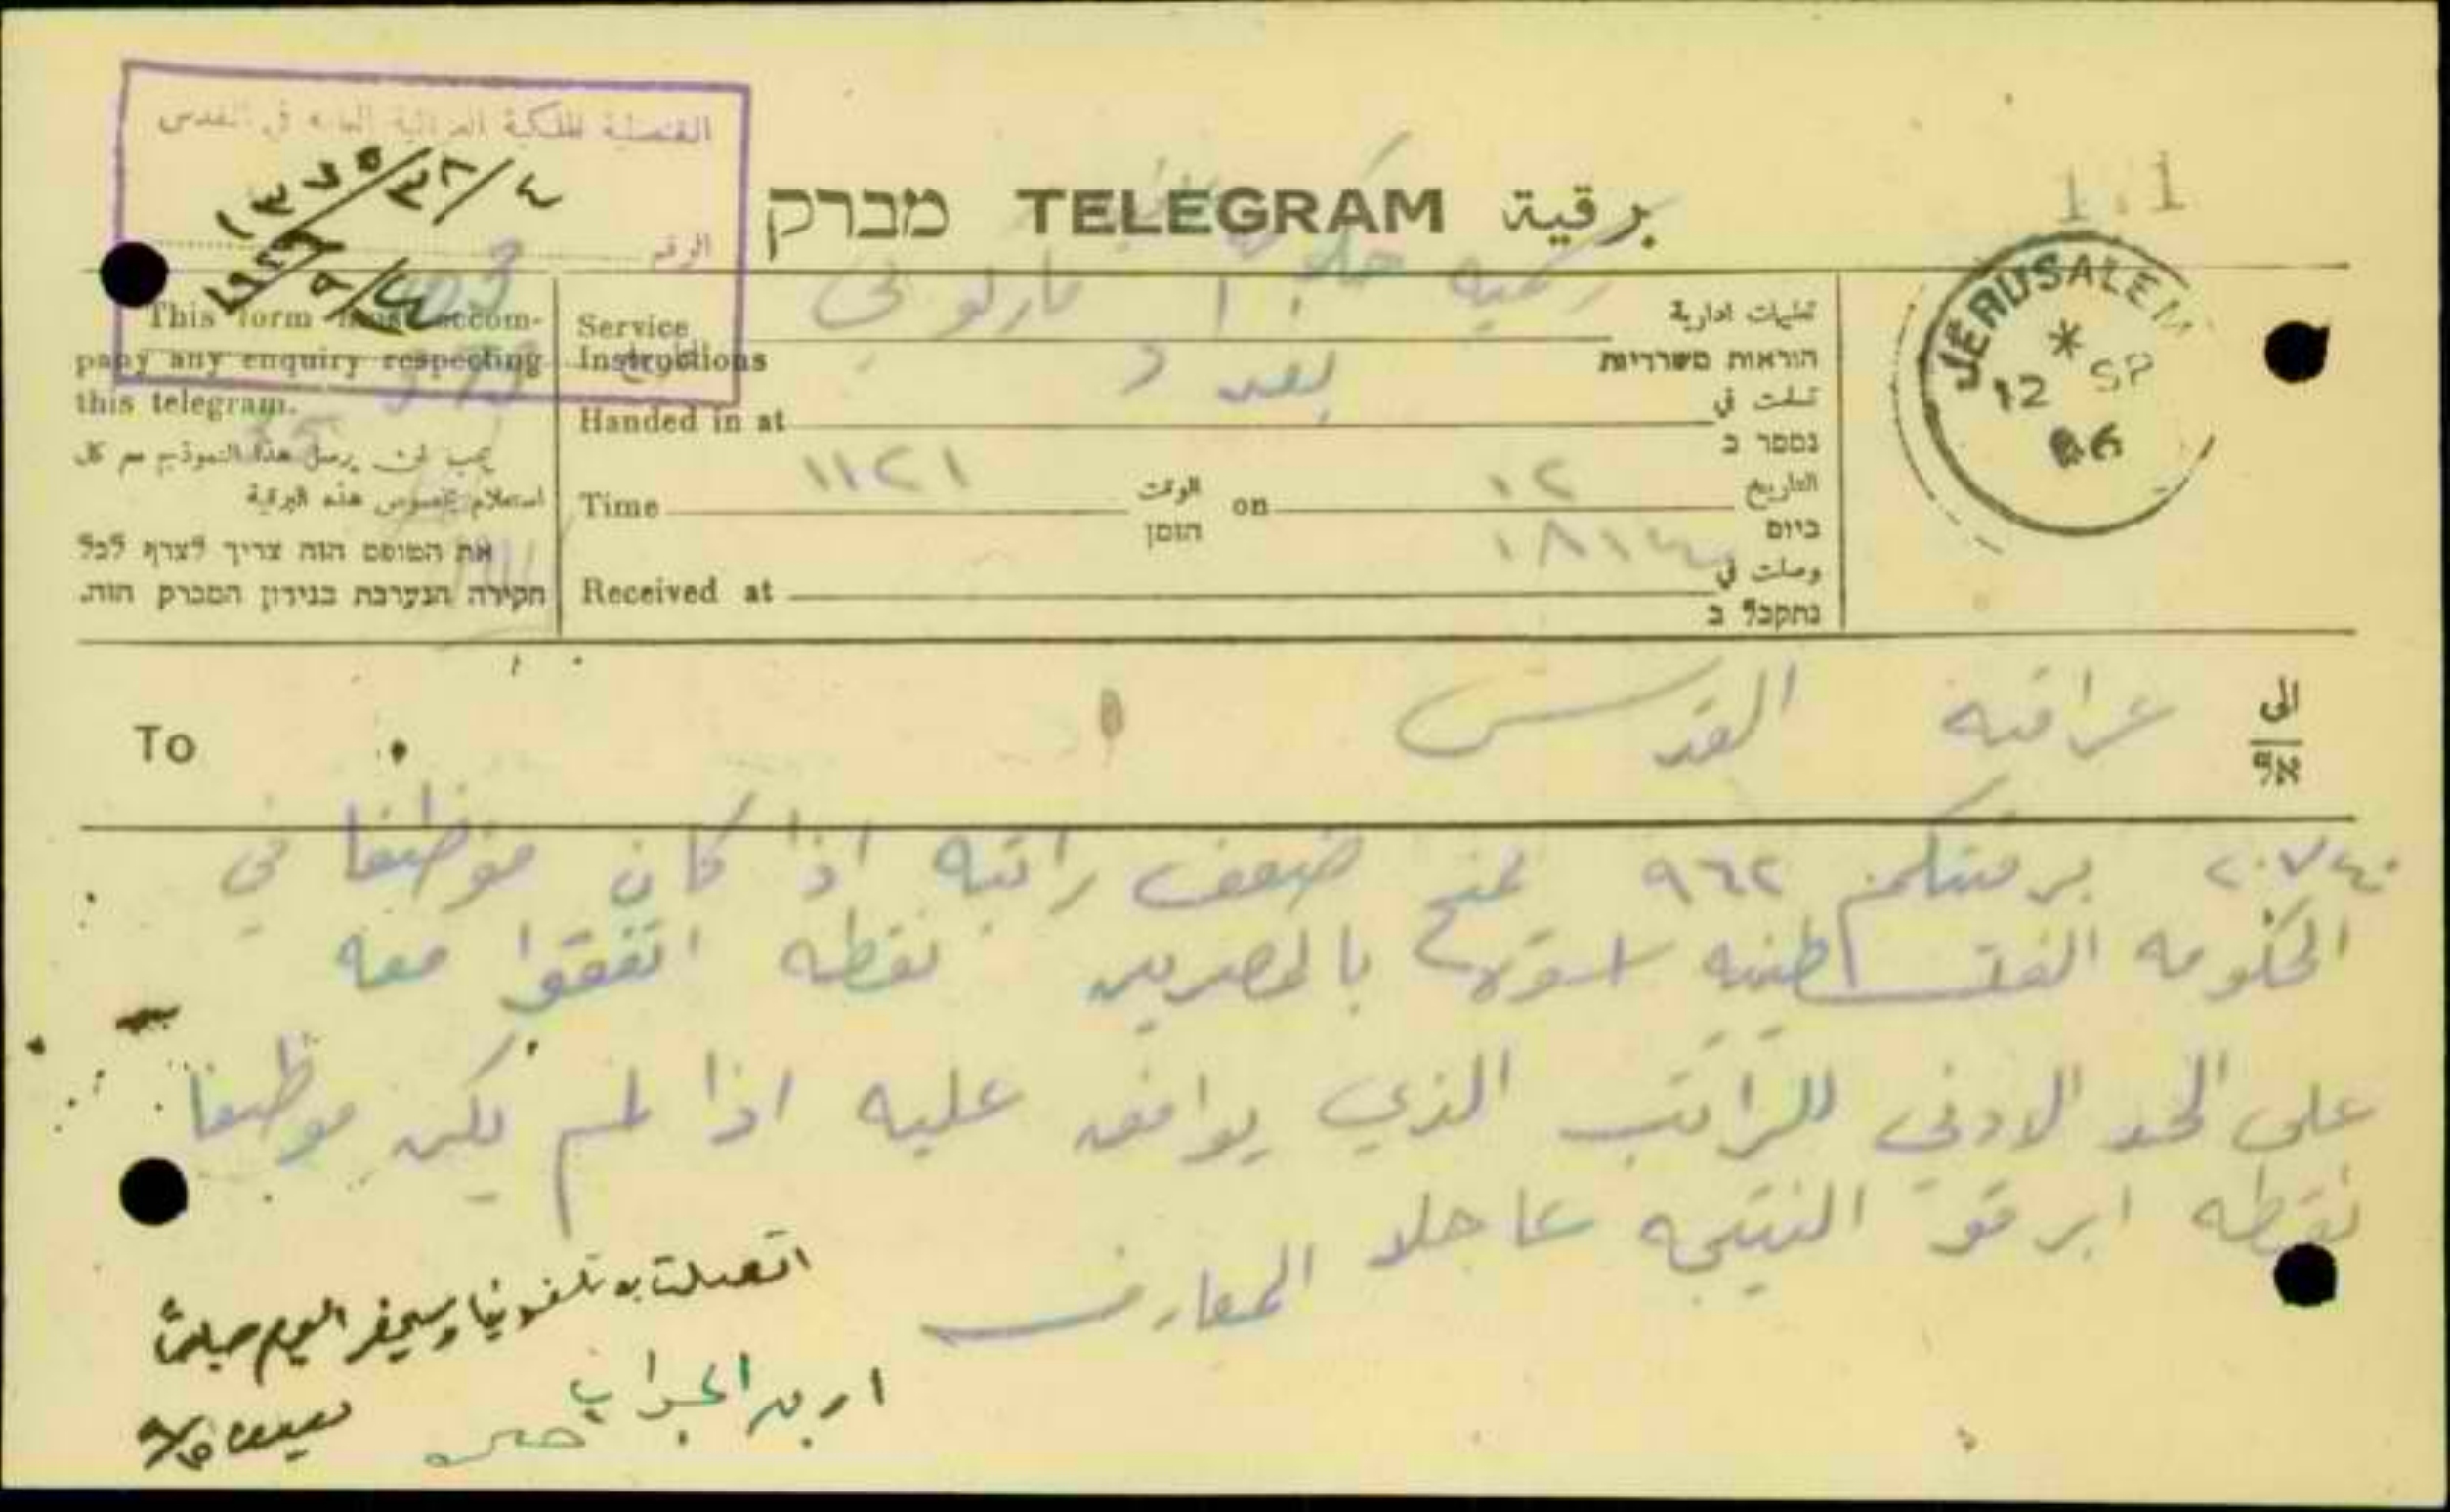 القنصلية الملكية العراقية العامة في القدس
الرقم
برقية TELEGRAM מברק
1.1
JERUSALEM
12 SP
This form must accom-
pany any enquiry respecting
this telegram.
يجب ان يرسل هذا النموذج مع كل
استعلام بخصوص هذه البرقية
את הטופס הזה צריך לצרף לכל
חקירה הנערכת בנידון המברק הזה.
Service Instructions
تعليمات ادارية
הוראות משרדיות
Handed in at بغداد تسلمت في
נמסר ב
Time ١١٢١ الوقت on ١٢ التاريخ
הזמן ביום
Received at وصلت في
נתקבל ב
To عراقيه القدس الى
אל
٢٠٧٤٠ برقيتكم ٩٦٢ نمنح ضعف راتبه اذا كان موظفا في
الحكومه الفلسطينيه اسوة بالمصريين نقطه اتفقوا معه
على الحد الادنى للراتب الذي يوافق عليه اذا لم يكن موظفا
نقطه ابرقوا النتيجه عاجلا المعارف
اتصلت به تلفونيا وسيحضر اليوم صباحاً
الجواب